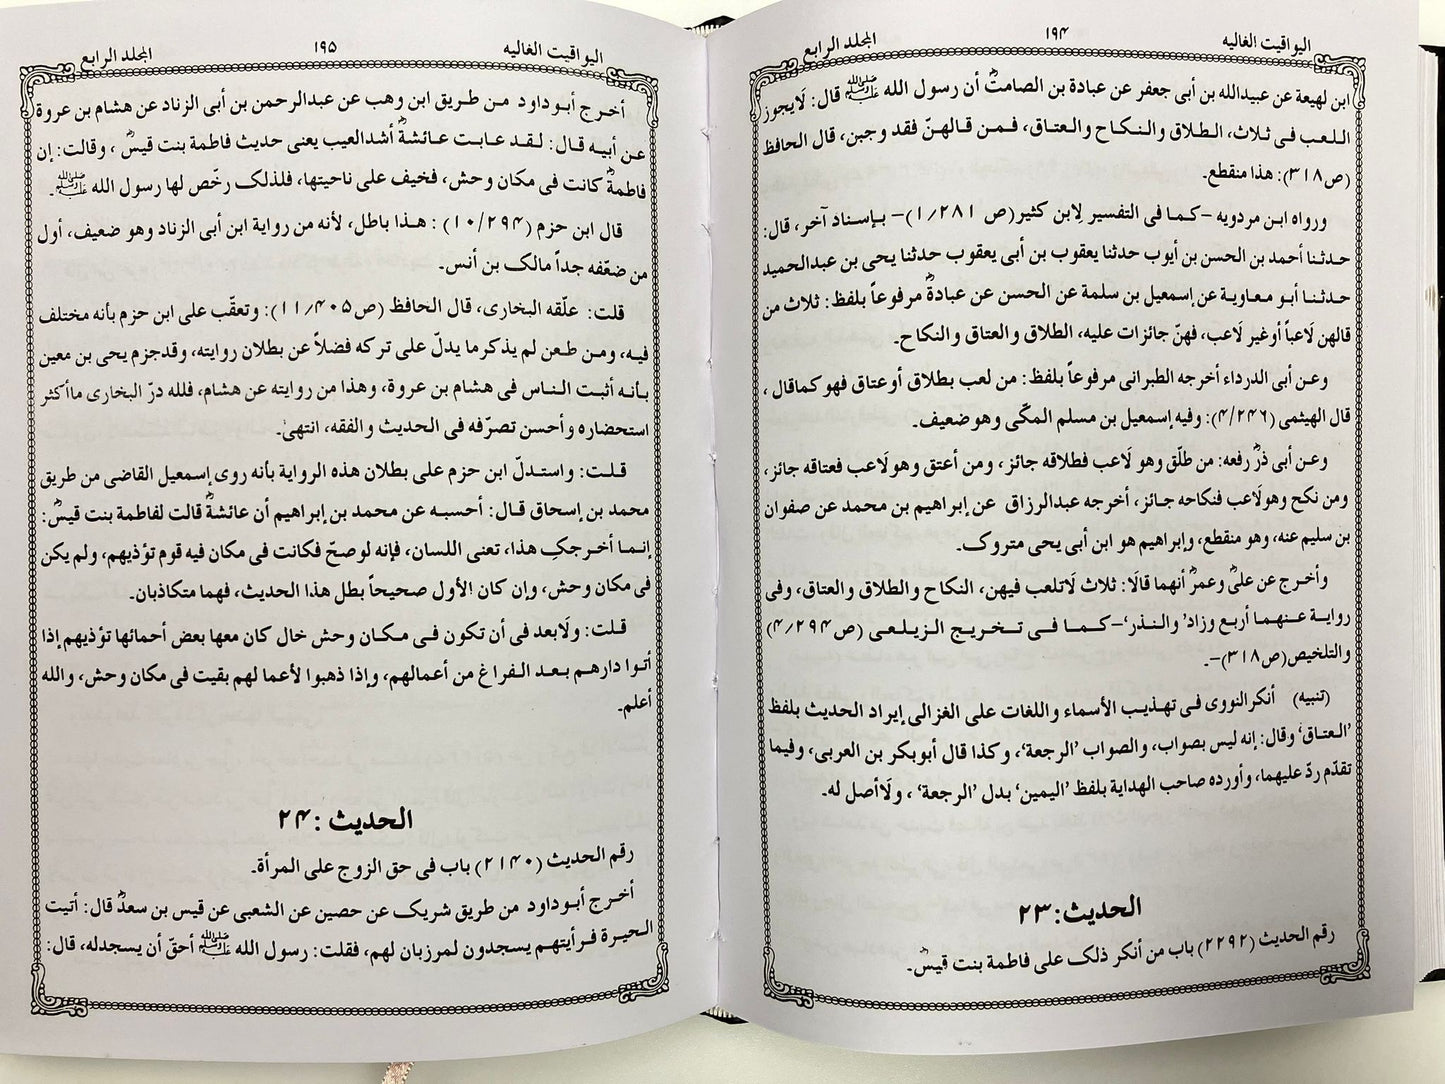 اليواقيت الغاليه ١٩۴ المجلد الرابع
ابن لهيعة عن عبيدالله بن أبى جعفر عن عبادة بن الصامتؓ أن رسول الله ﷺ قال: لَايجوز
اللعب فى ثلاث، الطلاق والنكاح والعتاق، فمن قالهنّ فقد وجبن، قال الحافظ
(ص٣١٨): هذا منقطع۔
ورواه ابن مردويه -كما فى التفسير لِابن كثير(ص ١/٢٨١)- بإسناد آخر، قال:
حدثنا أحمد بن الحسن بن أيوب حدثنا يعقوب بن أبى يعقوب حدثنا يحى بن عبدالحميد
حدثنا أبو معاوية عن إسمعيل بن سلمة عن الحسن عن عبادةؓ مرفوعاً بلفظ: ثلاث من
قالهن لَاعباً أوغير لَاعب، فهنّ جائزات عليه، الطلاق والعتاق والنكاح۔
وعن أبى الدرداء أخرجه الطبرانى مرفوعاً بلفظ: من لعب بطلاق أوعتاق فهو كماقال ،
قال الهيثمى (۴/٢۴۶): وفيه إسمعيل بن مسلم المكّى وهو ضعيف۔
وعن أبى ذرؓ رفعه: من طلّق وهو لَاعب فطلاقه جائز، ومن أعتق وهولَاعب فعتاقه جائز،
ومن نكح وهولَاعب فنكاحه جائز، أخرجه عبدالرزاق عن إبراهيم بن محمد عن صفوان
بن سليم عنه، وهو منقطع، وإبراهيم هو ابن أبى يحى متروک۔
وأخرج عن علىؓ وعمرؓ أنهما قالَا: ثلاث لَاتلعب فيهن، النكاح والطلاق والعتاق، وفى
رواية عنهما أربع وزاد' والنذر'-كما فى تخريج الزيلعى (ص۴/٢٩۴)
والتلخيص(ص٣١٨)-۔
(تنبيه) أنكرالنووى فى تهذيب الأسماء واللغات على الغزالى إيراد الحديث بلفظ
'العتاق' وقال: إنه ليس بصواب، والصواب 'الرجعة'، وكذا قال أبوبكر بن العربى، وفيما
تقدّم ردّ عليهما، وأورده صاحب الهداية بلفظ 'اليمين' بدل 'الرجعة' ، ولَاأصل له۔
الحديث:٢٣
رقم الحديث (٢٢٩٢) باب من أنكر ذلک على فاطمة بنت قيسؓ۔
اليواقيت الغاليه ١٩۵ المجلد الرابع
أخرج أبوداود من طريق ابن وهب عن عبدالرحمن بن أبى الزناد عن هشام بن عروة
عن أبيه قال: لقد عابت عائشةؓ أشدالعيب يعنى حديث فاطمة بنت قيسؓ ، وقالت: إن
فاطمةؓ كانت فى مكان وحش، فخيف على ناحيتها، فلذلک رخّص لها رسول الله ﷺ۔
قال ابن حزم (١٠/٢٩۴) : هذا باطل، لأنه من رواية ابن أبى الزناد وهو ضعيف، أول
من ضعّفه جداً مالک بن أنس۔
قلت: علّقه البخارى، قال الحافظ (ص١١/۴٠۵): وتعقّب على ابن حزم بأنه مختلف
فيه، ومن طعن لم يذكرما يدلّ على تركه فضلاً عن بطلان روايته، وقدجزم يحى بن معين
بأنه أثبت الناس فى هشام بن عروة، وهذا من روايته عن هشام، فلله درّ البخارى ماأكثر
استحضاره وأحسن تصرّفه فى الحديث والفقه، انتهىٰ۔
قلت: واستدلّ ابن حزم على بطلان هذه الرواية بأنه روى إسمعيل القاضى من طريق
محمد بن إسحاق قال: أحسبه عن محمد بن إبراهيم أن عائشةؓ قالت لفاطمة بنت قيسؓ:
إنما أخرجکِ هذا، تعنى اللسان، فإنه لوصحّ فكانت فى مكان فيه قوم تؤذيهم، ولم يكن
فى مكان وحش، وإن كان الأول صحيحاً بطل هذا الحديث، فهما متكاذبان۔
قلت: ولَابعد فى أن تكون فى مكان وحش خال كان معها بعض أحمائها تؤذيهم إذا
أتوا دارهم بعد الفراغ من أعمالهم، وإذا ذهبوا لأعما لهم بقيت فى مكان وحش، والله
أعلم۔
الحديث :٢۴
رقم الحديث (٢١۴٠) باب فى حق الزوج على المرأة۔
أخرج أبوداود من طريق شريک عن حصين عن الشعبى عن قيس بن سعدؓ قال: أتيت
الحيرة فرأيتهم يسجدون لمرزبان لهم، فقلت: رسول الله ﷺ أحقّ أن يسجدله، قال: